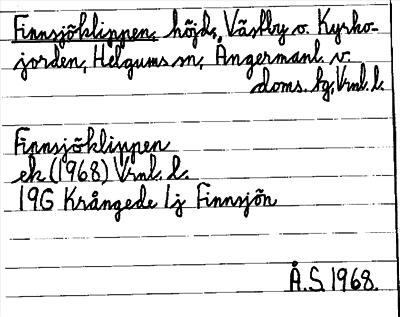 Finnsjöklippen, höjd, Västby o. Kyrko-
jorden, Helgums sn, Ångermanl. v.
doms. hg, Vrnl. l.
Finnsjöklippen
ek (1968) Vrnl. l.
19G Krångede 1j Finnsjön
Å.S. 1968.